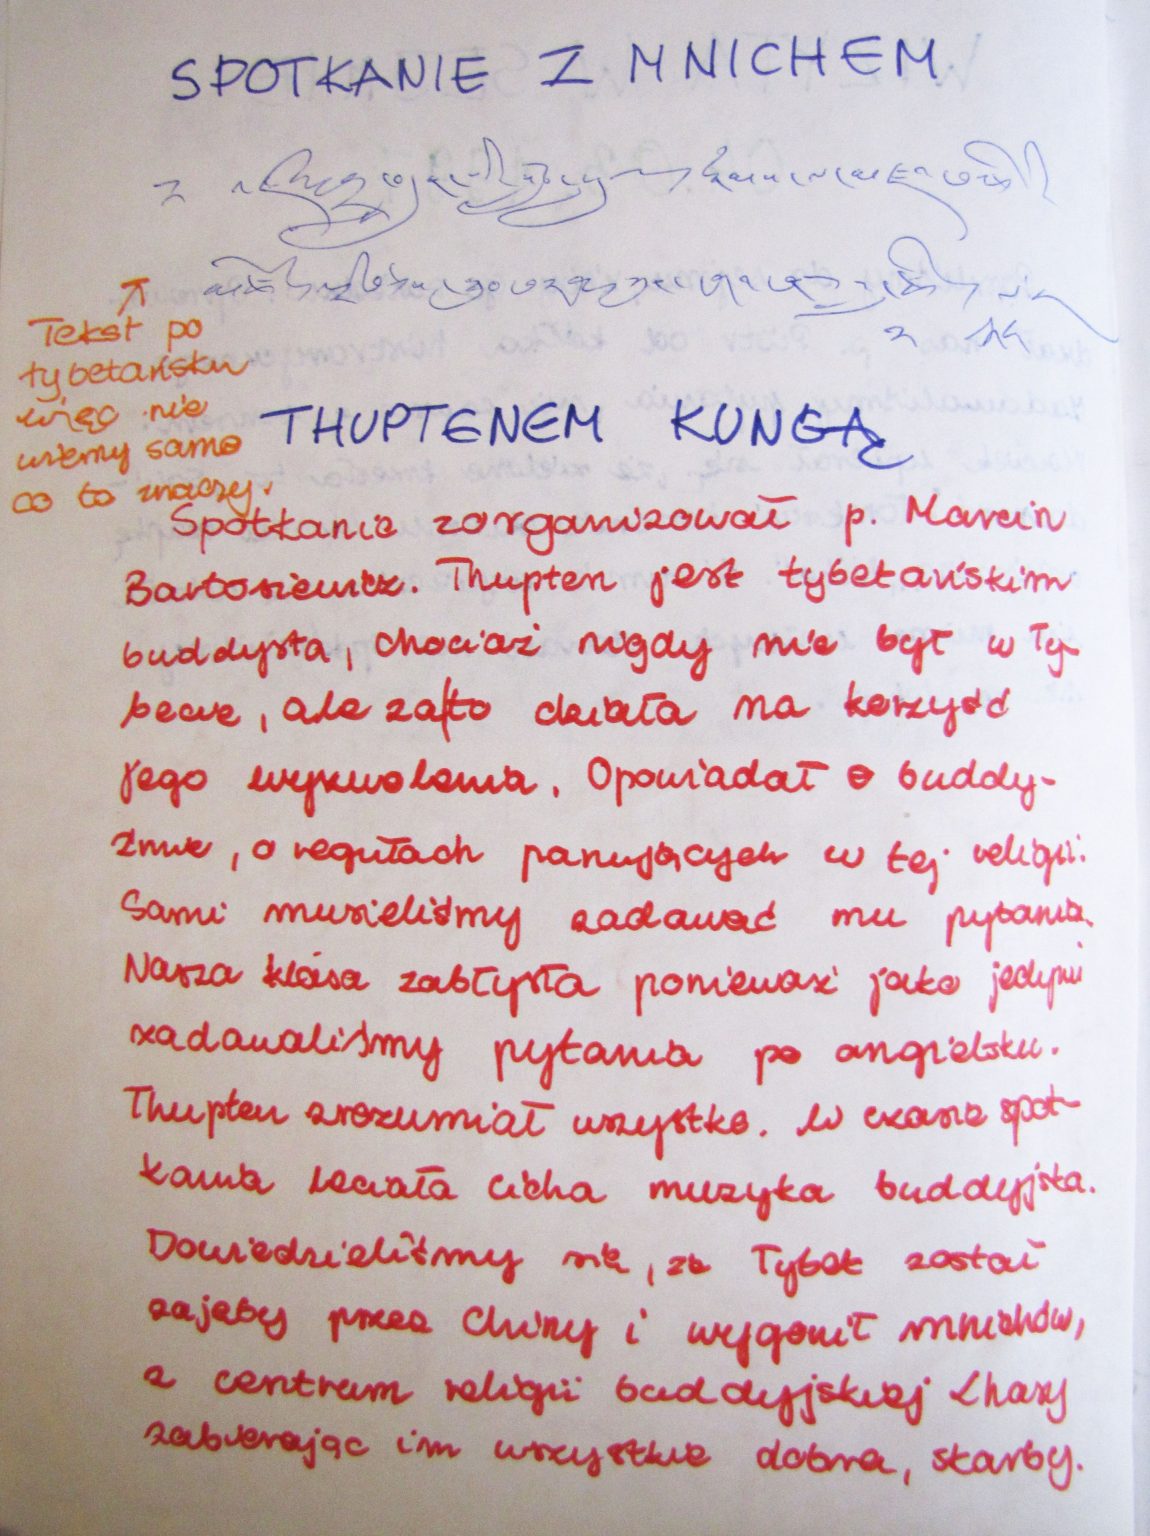 SPOTKANIE Z MNICHEM
Tekst po
tybetańsku
więc nie
wiemy samo
co to znaczy.
THUPTENEM KUNGĄ
Spotkanie zorganizował p. Marcin
Bartosiewicz. Thupten jest tybetańskim
buddystą, chociaż nigdy nie był w Ty-
becie, ale za to działa na korzyść
jego wyzwolenia. Opowiadał o buddy-
źmie, o regułach panujących w tej religii.
Sami musieliśmy zadawać mu pytania.
Nasza klasa zabłysła ponieważ jako jedyni
zadawaliśmy pytania po angielsku.
Thupten zrozumiał wszystko. W czasie spot-
kania leciała cicha muzyka buddyjska.
Dowiedzieliśmy się, że Tybet został
zajęty przez Chiny i wygonił mnichów,
z centrum religii buddyjskiej Lhasy
zabierając im wszystkie dobra, skarby.